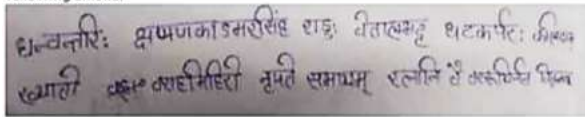 धन्वन्तरिः क्षपणकाऽमरसिंह शङ्कुः वेतालभट्ट घटकर्परः
ख्यातो वराहमिहिरो नृपते सभायम् रत्नानि वै वररुचिर्नव